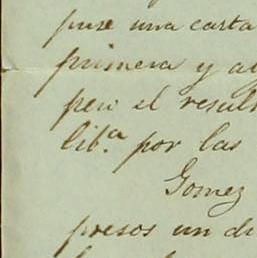 puse una carta
primera y a
pero el resul
lib.ª por las
Gomez
presos un di